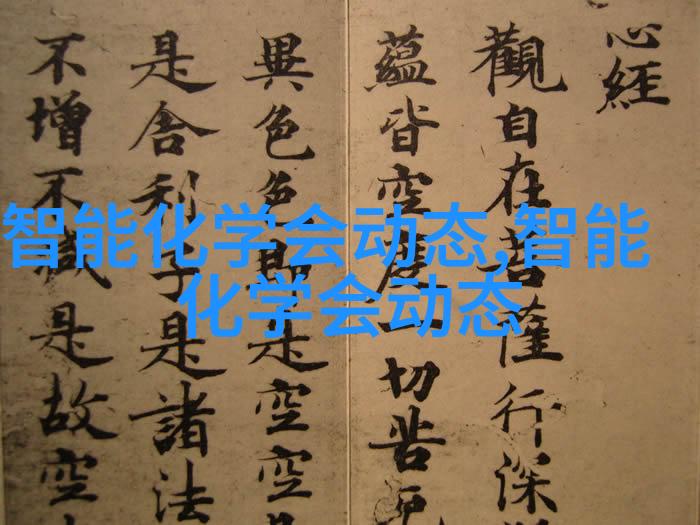 心經
觀自在菩薩行深
蘊皆空度一切苦厄
異色色即是空空
是舍利子是諸法
不增不減是故空
智能化学会动态,智能
化学会动态